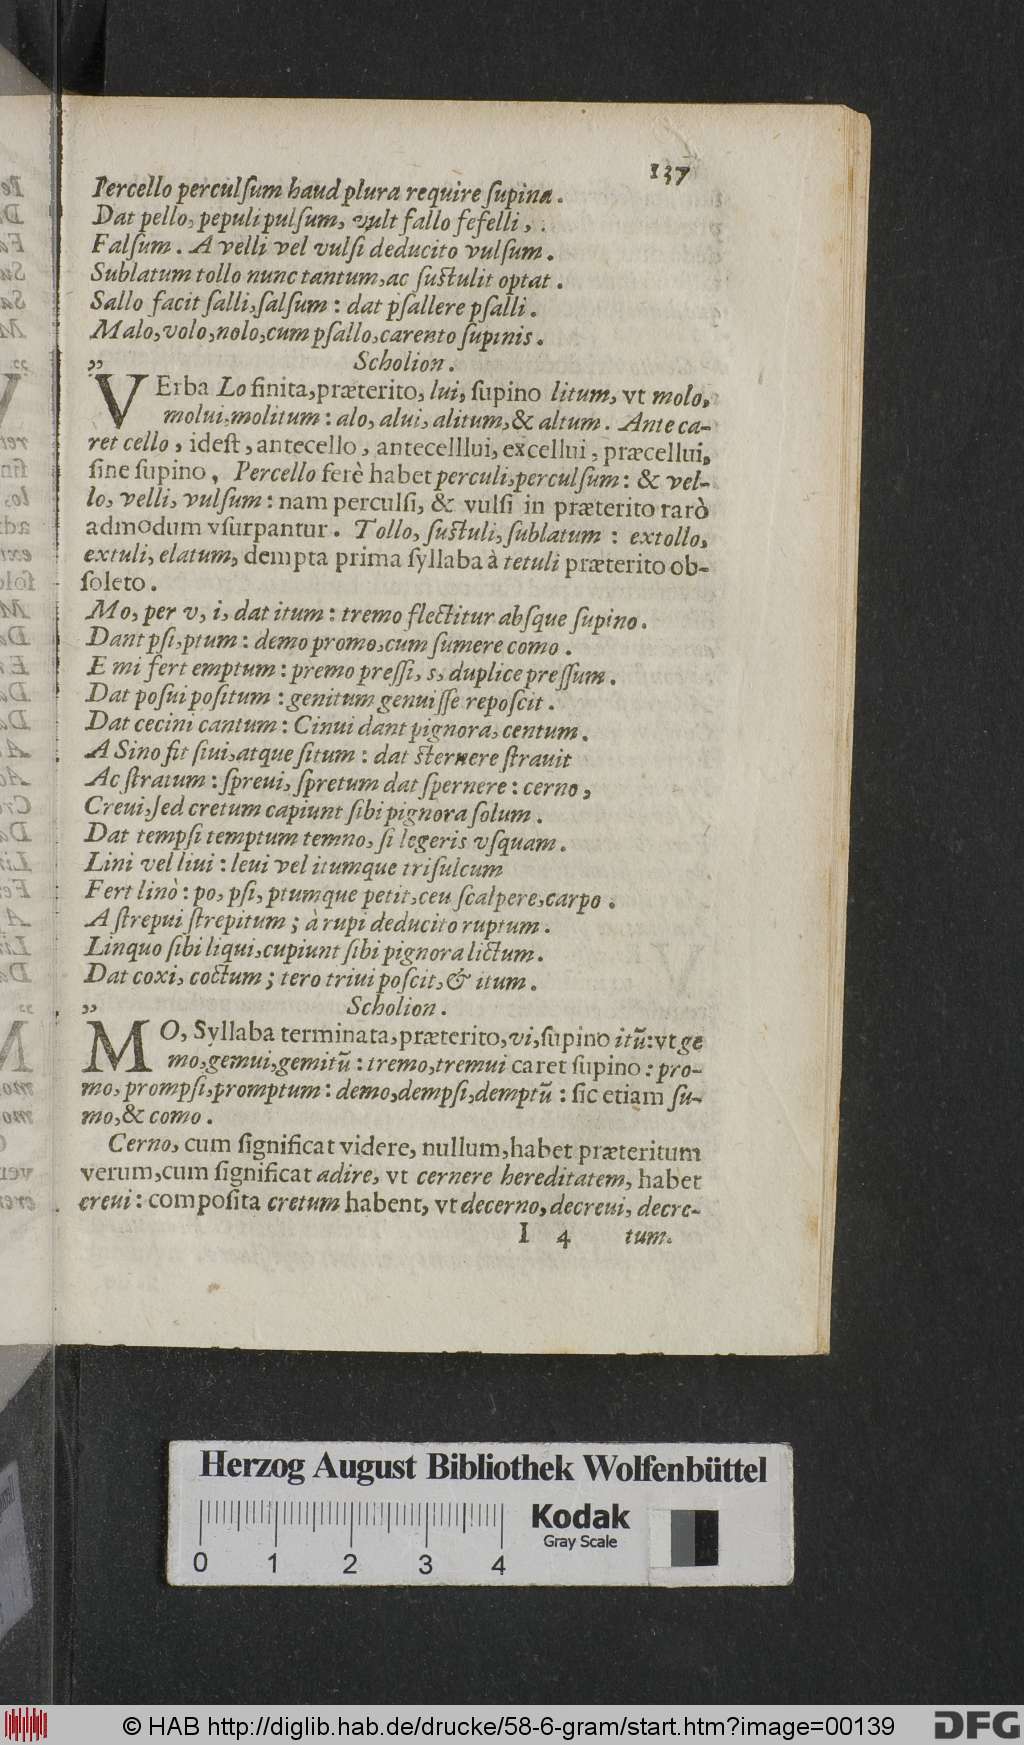 137
Percello perculſum haud plura require ſupina.
Dat pello, pepuli pulſum, vult fallo fefelli,.
Falſum. A velli vel vulſi deducito vulſum.
Sublatum tollo nunc tantum, ac ſustulit optat.
Sallo facit ſalli, ſalſum: dat pſallere pſalli.
Malo, volo, nolo, cum pſallo, carento ſupinis.
„ Scholion.
VErba Lo finita, præterito, lui, ſupino litum, vt molo,
molui, molitum: alo, alui, alitum, & altum. Ante ca-
ret cello, ideſt, antecello, antecelllui, excellui, præcellui,
ſine ſupino, Percello ferè habet perculi, perculſum: & vel-
lo, velli, vulſum: nam perculſi, & vulſi in præterito rarò
admodum vſurpantur. Tollo, ſustuli, ſublatum: extollo,
extuli, elatum, dempta prima ſyllaba à tetuli præterito ob-
ſoleto.
Mo, per v, i, dat itum: tremo flectitur abſque ſupino.
Dant pſi, ptum: demo promo, cum ſumere como.
E mi fert emptum: premo preſſi, s, duplice preſſum.
Dat poſui poſitum: genitum genuiſſe repoſcit.
Dat cecini cantum: Cinui dant pignora, centum.
A Sino fit ſiui, atque ſitum: dat sternere ſtrauit
Ac ſtratum: ſpreui, ſpretum dat ſpernere: cerno,
Creui, ſed cretum capiunt ſibi pignora ſolum.
Dat tempſi temptum temno, ſi legeris vſquam.
Lini vel liui: leui vel itumque triſulcum
Fert linò: po, pſi, ptumque petit, ceu ſcalpere, carpo.
A ſtrepui ſtrepitum; à rupi deducito ruptum.
Linquo ſibi liqui, cupiunt ſibi pignora lictum.
Dat coxi, coctum; tero triui poſcit, & itum.
„ Scholion.
MO, Syllaba terminata, præterito, vi, ſupino itū: vt ge
mo, gemui, gemitū: tremo, tremui caret ſupino: pro-
mo, prompſi, promptum: demo, dempſi, demptū: ſic etiam ſu-
mo, & como.
Cerno, cum ſignificat videre, nullum, habet præteritum
verum, cum ſignificat adire, vt cernere hereditatem, habet
creui: compoſita cretum habent, vt decerno, decreui, decre-
I 4 tum.
Herzog August Bibliothek Wolfenbüttel
0 1 2 3 4
Kodak
Gray Scale
© HAB http://diglib.hab.de/drucke/58-6-gram/start.htm?image=00139
DFG